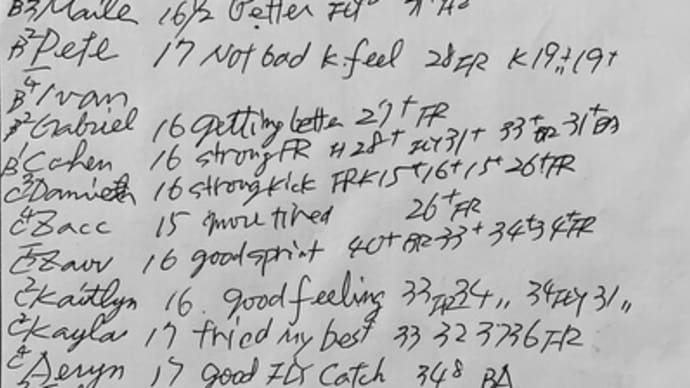 B3 Maile 16 1/2 Better FLY
B2 Pete 17 Not bad K.feel 28 FR K 19,, 19+
B4 Ivan
B2 Gabriel 16 getting better 27+ FR
B1 Cohen 16 strong FR 28+ FLY 31+ 33+ BR 31+ BA
C3 Damieth 16 strong kick FR K 15+ 16+ 15+ 26+ FR
C4 Zacc 15 more tired 26+ FR
C5 Zavv 16 good sprint 40+ BR 33+ 34+ 34+ FR
C2 Kaitlyn 16. good feeling 33 FR 34,, 34 FLY 31,,
C2 Kayla 17 tried my best 33 32 37 36 FR
C4 Aeryn 17 good FLY catch 348 BA